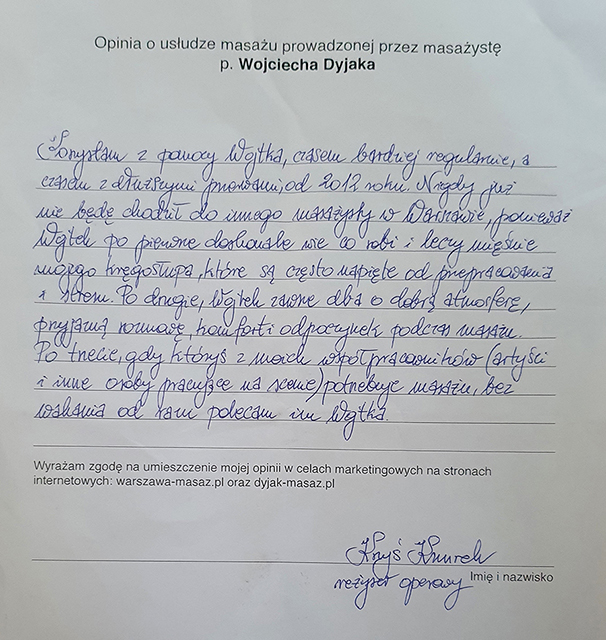 Opinia o usłudze masażu prowadzonej przez masażystę
p. Wojciecha Dyjaka
Korzystam z pomocy Wojtka, czasem bardziej regularnie, a
czasem z dłuższymi przerwami, od 2012 roku. Nigdy już
nie będę chodził do innego masażysty w Warszawie, ponieważ
Wojtek po pierwsze doskonale wie co robi i leczy mięśnie
mojego kręgosłupa, które są często napięte od przepracowania
i stresu. Po drugie, Wojtek zawsze dba o dobrą atmosferę,
przyjazną rozmowę, komfort i odpoczynek podczas masażu.
Po trzecie, gdy któryś z moich współpracowników (artyści
i inne osoby pracujące na scenie) potrzebuje masażu, bez
wahania od razu polecam im Wojtka.
Wyrażam zgodę na umieszczenie mojej opinii w celach marketingowych na stronach
internetowych: warszawa-masaz.pl oraz dyjak-masaz.pl
Kryś Knurek
reżyser operowy
Imię i nazwisko